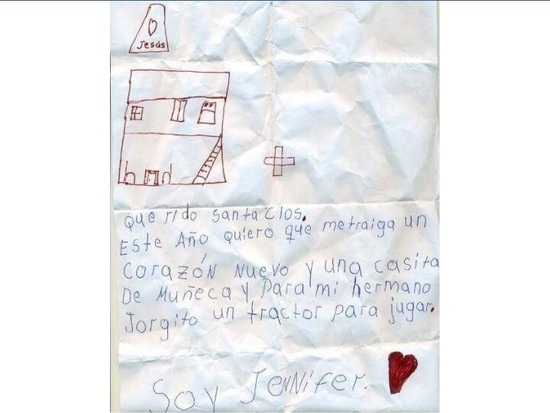 Jesús
Querido Santa Clos.
Este Año quiero que metraiga un
Corazón Nuevo y una casita
De Muñeca y Para mi hermano
Jorgito un tractor para jugar.
Soy Jennifer.